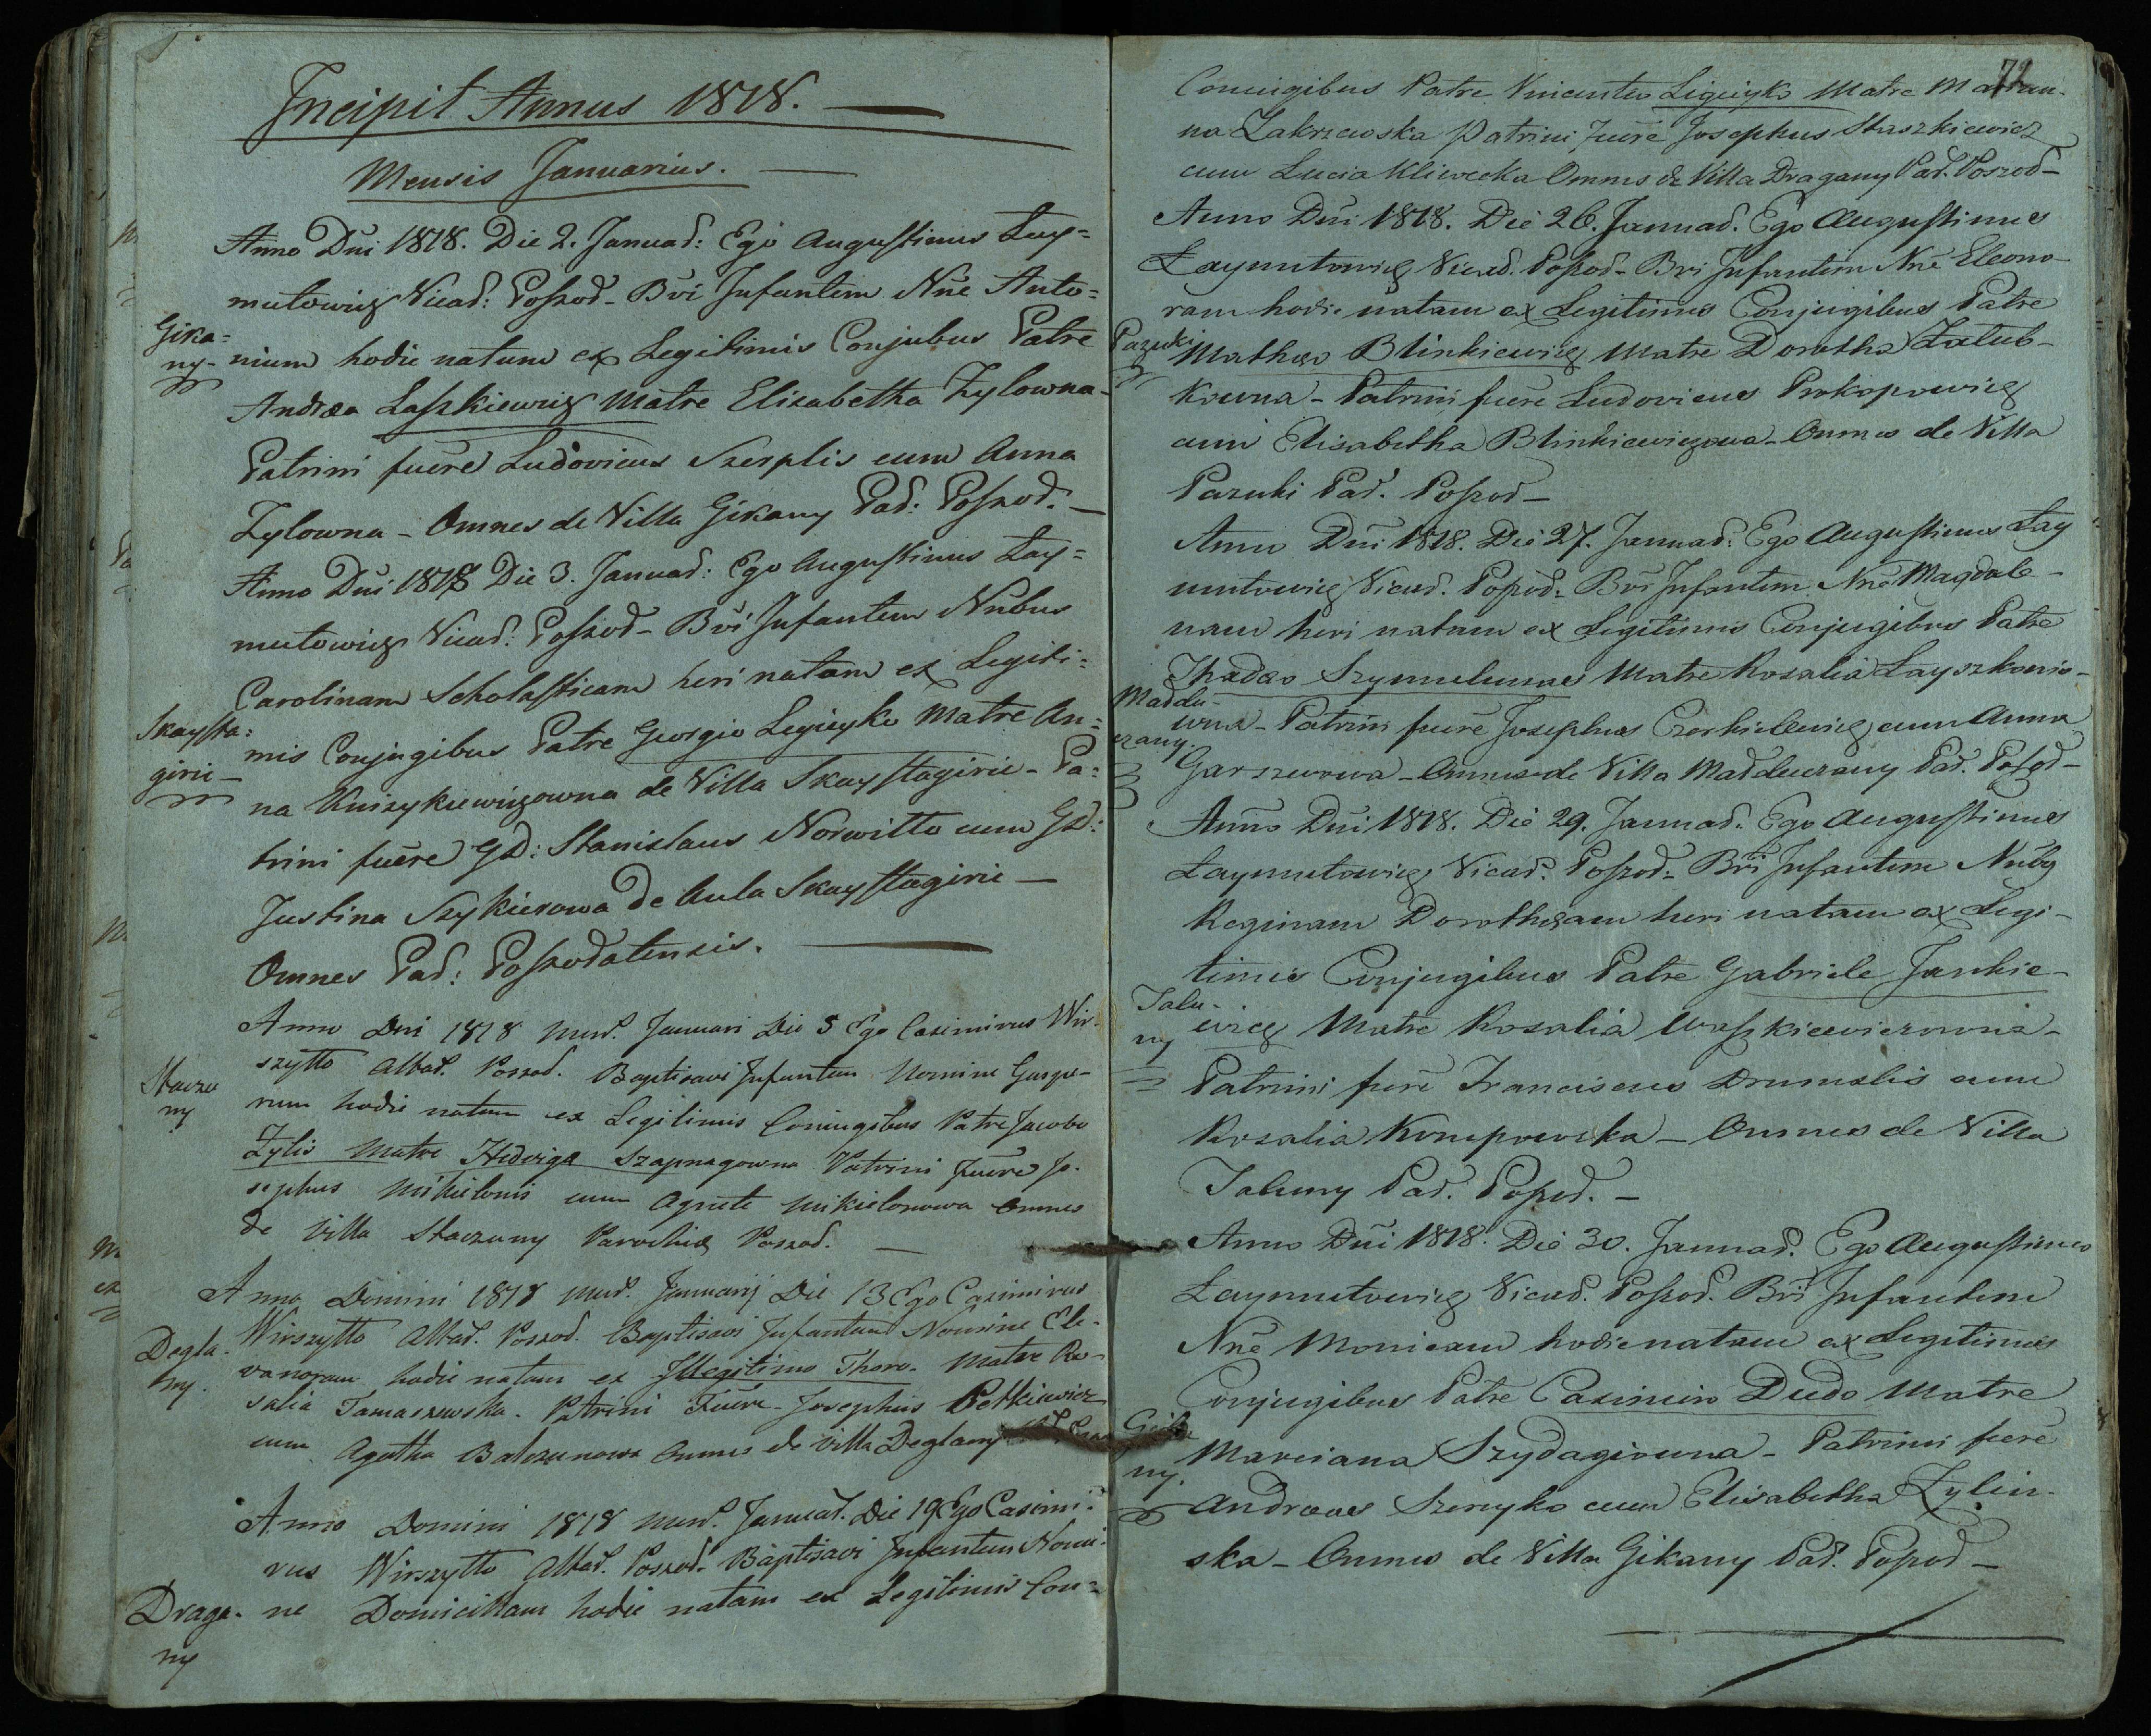 Incipit Annus 1818.
Mensis Januarius.
Anno Dni 1818. Die 2. Januar: Ego Augustinus Łay=
mutowicz Vicar: Poszod– Bvi Infantem Nne Anto=
Gika=
ny–
nium hodie natum ex Legitimis Conjubus Patre
Andrea Laszkiewicz Matre Elisabetha Zylowna–
Patrini fuere Ludovicus Szerplis cum Anna
Zylowna – Omnes de Villa Gikany Par: Poszod. –
Anno Dni 1818 Die 3. Januar: Ego Augustinus Łay=
mutowicz Vicar: Poszod– Bvi Infantem Nnbus
Carolinam Scholasticam heri natam ex Legiti=
Skaysta=
girie–
mis Conjugibus Patre Georgio Legieyko Matre An=
na Knizykiewiczowna de Villa Skaystagirie – Pa=
trini fuere GD: Stanislaus Norwitto cum GD:
Justina Szykierowa de Aula Skaystagirie –
Omnes Par: Poszodatensis.
Anno Dni 1818 Mens. Januari Die 5 Ego Casimirus Wir-
szytto Altar. Poszod. Baptisavi Infantem Nomine Gaspa-
Staczu
ny
rum hodie natum ex Legitimis Coniugibus Patre Jacobo
Zylis Matre Hedviga Szapnagowna Patrini Fuere Jo-
sephus Mikielonis cum Agnete Mikielonowa Omnes
de Villa Staczuny Parochiæ Poszod. –
Anno Domini 1818 Mens. Januarij Die 13 Ego Casimirus
Degla-
ny.
Wirszytto Altar. Poszod. Baptisavi Infantem Nomine Ele-
vanoram hodie natam ex Illegitimo Thoro. Matre Ro-
salia Tamaszewska. Patrini Fuere Josephus Petkiewicz
cum Agatha Balczunowa Omnes de Villa Deglany
Anno Domini 1818 Mens. Januar. Die 19 Ego Casimi-
rus Wirszytto Altar. Poszod. Baptisavi Infantem Nomi-
Draga-
ny
ne Domicillam hodie natam ex Legitimis Con=
72
Coniugibus Patre Vincentio Ligieyko Matre Marian-
na Zakrzewska Patrini Fuere Josephus Staszkiewicz
cum Lucia Kliwecka Omnes de Villa Dragany Par. Poszod–
Anno Dni 1818. Die 26. Januar. Ego Augustinus
Łaymutowicz Vicar. Poszod– Bvi Infantem Nne Eleono-
ram hodie natam ex Legitimis Conjugibus Patre
Pazuki
Mathæo Blinkiewicz Matre Dorotha Załub-
kowna – Patrini fuere Ludovicus Prokopowicz
cum Elisabetha Blinkiewiczowa – Omnes de Villa
Pazuki Par. Poszod–
Anno Dni 1818. Die 27. Januar. Ego Augustinus Łay
mutowicz Vicar. Poszod– Bvi Infantem Nne Magdale-
nam heri natam ex Legitimis Conjugibus Patre
Thadæo Szymulunas Matre Rosalia Łayszkowio-
Maddu-
czany.
wna – Patrini fuere Josephus Czerkielewicz cum Anna
Garszwowa – Omnes de Villa Madduczany Par. Poszod–
Anno Dni 1818. Die 29. Januar. Ego Augustinus
Łaymutowicz Vicar. Poszod– Bvi Infantem Nnbg
Reginam Dorotheam heri natam ex Legi-
timis Conjugibus Patre Gabriele Jankie-
Jalu-
ny
wicz Matre Rosalia Waszkiewiczowna –
Patrini fuere Franciscus Drumstis cum
Rosalia Kompowska – Omnes de Villa
Jaluny Par. Poszod. –
Anno Dni 1818. Die 30. Januar. Ego Augustinus
Łaymutowicz Vicar. Poszod. Bvi Infantem
Nne Monicam hodie natam ex Legitimis
Conjugibus Patre Casimiro Dudo Matre
Gika
ny.
Marciana Szydagirwna – Patrini fuere
Andreas Szereyko cum Elisabetha Zylin-
ska – Omnes de Villa Gikany Par. Poszod –